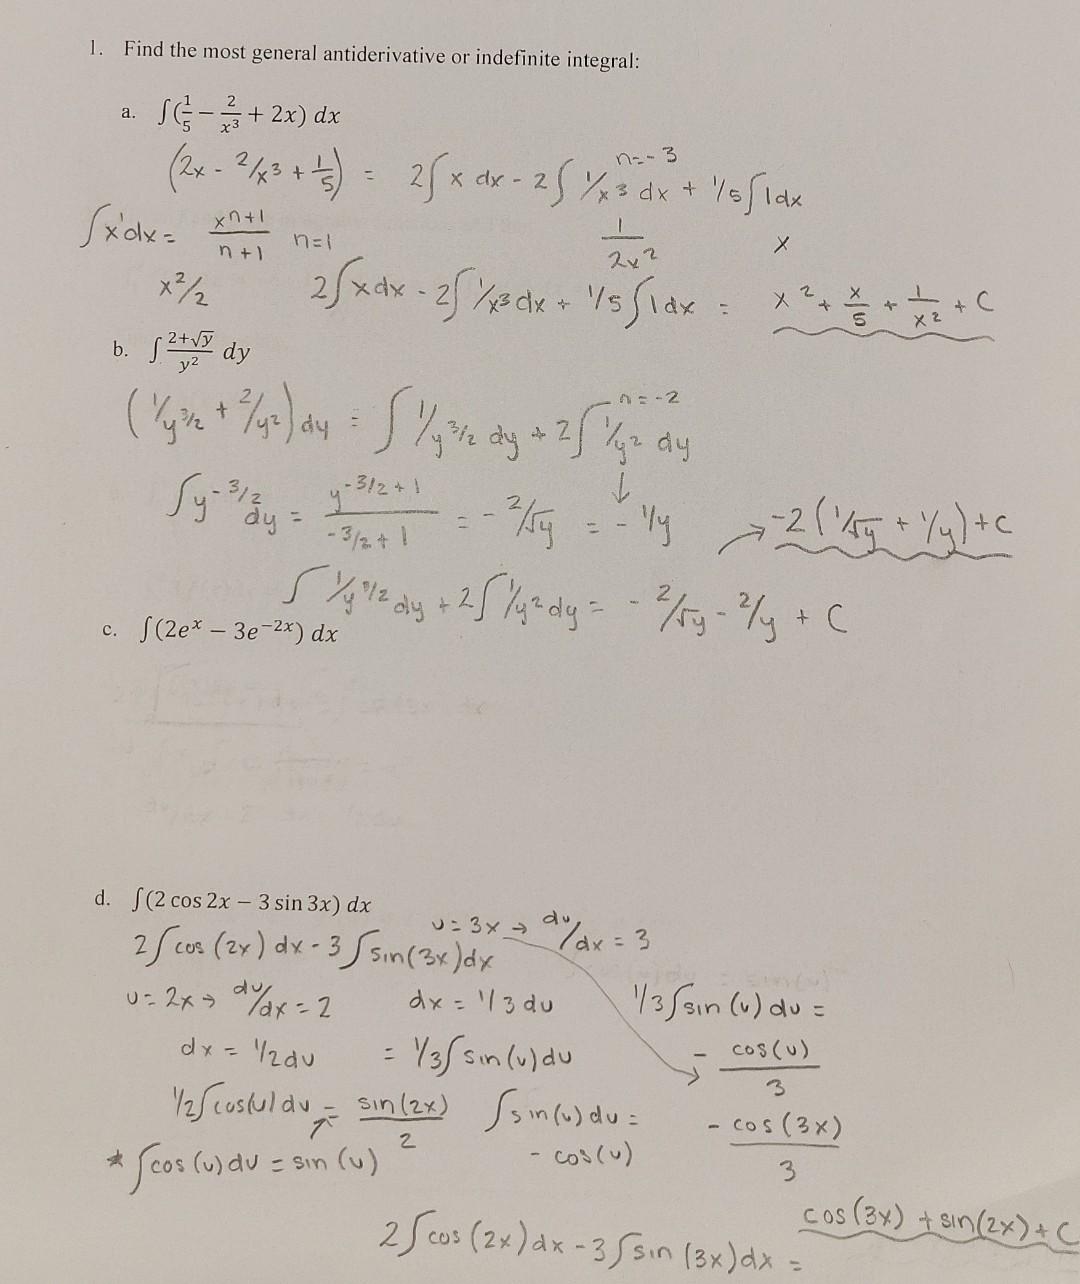 1. Find the most general antiderivative or indefinite integral:
a. ∫(1/5 − 2/x³ + 2x) dx
(2x - 2/x³ + 1/5) = 2∫x dx - 2∫1/x³ dx + 1/5∫1dx
n=-3
∫x¹dx = xⁿ⁺¹/n+1 n=1
1/2x² x
x²/2 2∫xdx - 2∫1/x³dx + 1/5∫1dx = x² + x/5 + 1/x² + C
b. ∫ 2+√y/y² dy
(1/y^3/2 + 2/y²)dy = ∫1/y^3/2 dy + 2∫1/y² dy
n=-2
∫y^-3/2 dy = y^-3/2+1/-3/2+1 = -2/√y = -1/y → -2(1/√y + 1/y)+C
∫1/y^3/2 dy + 2∫1/y²dy = -2/√y - 2/y + C
c. ∫(2eˣ − 3e⁻²ˣ) dx
d. ∫(2 cos 2x − 3 sin 3x) dx
u=3x → du/dx = 3
2∫cos(2x)dx - 3∫sin(3x)dx
u=2x → du/dx = 2 dx = 1/3 du 1/3∫sin(u)du =
dx = 1/2du = 1/3∫sin(u)du - cos(u)/3
1/2∫cos(u)du = sin(2x)/2 ∫sin(u)du = - cos(3x)/3
* ∫cos(u)du = sin(u) - cos(u)
2∫cos(2x)dx - 3∫sin(3x)dx = cos(3x) + sin(2x) + C